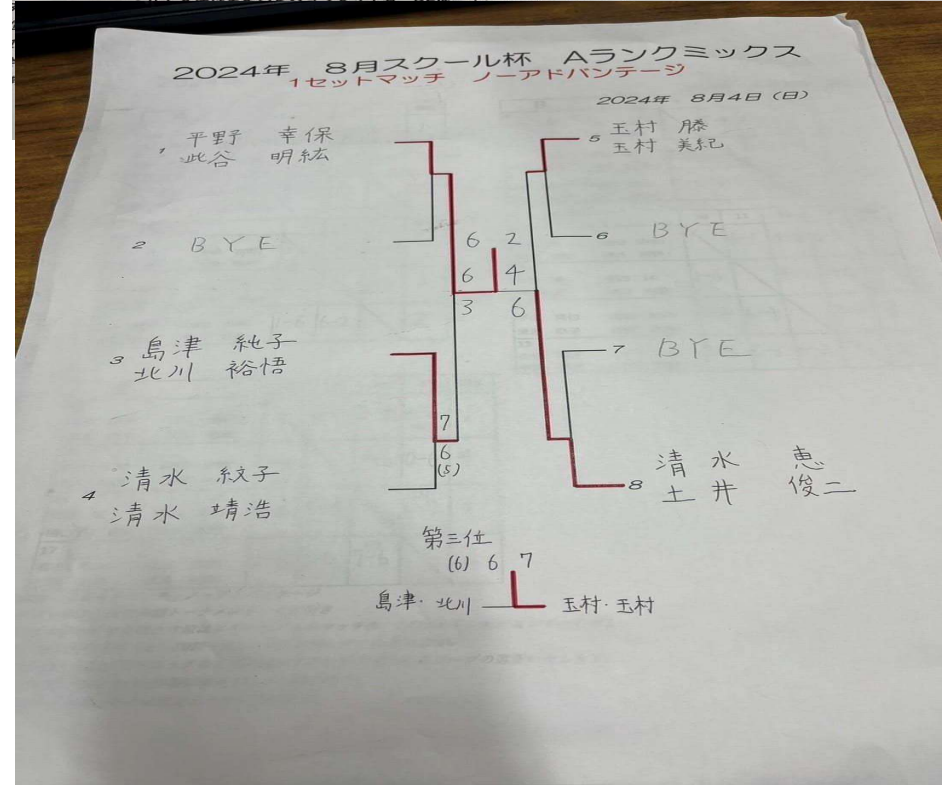 2024年 8月スクール杯 Aランクミックス
1セットマッチ ノーアドバンテージ
2024年 8月4日(日)
1 平野 幸保
澁谷 明紘
2 BYE
3 島津 純子
北川 裕悟
4 清水 紋子
清水 靖浩
5 玉村 勝
玉村 美紀
6 BYE
7 BYE
8 清水 恵
土井 俊二
6 2
6 4
3 6
7
6
(5)
第三位
(6) 6 7
島津・北川 玉村・玉村